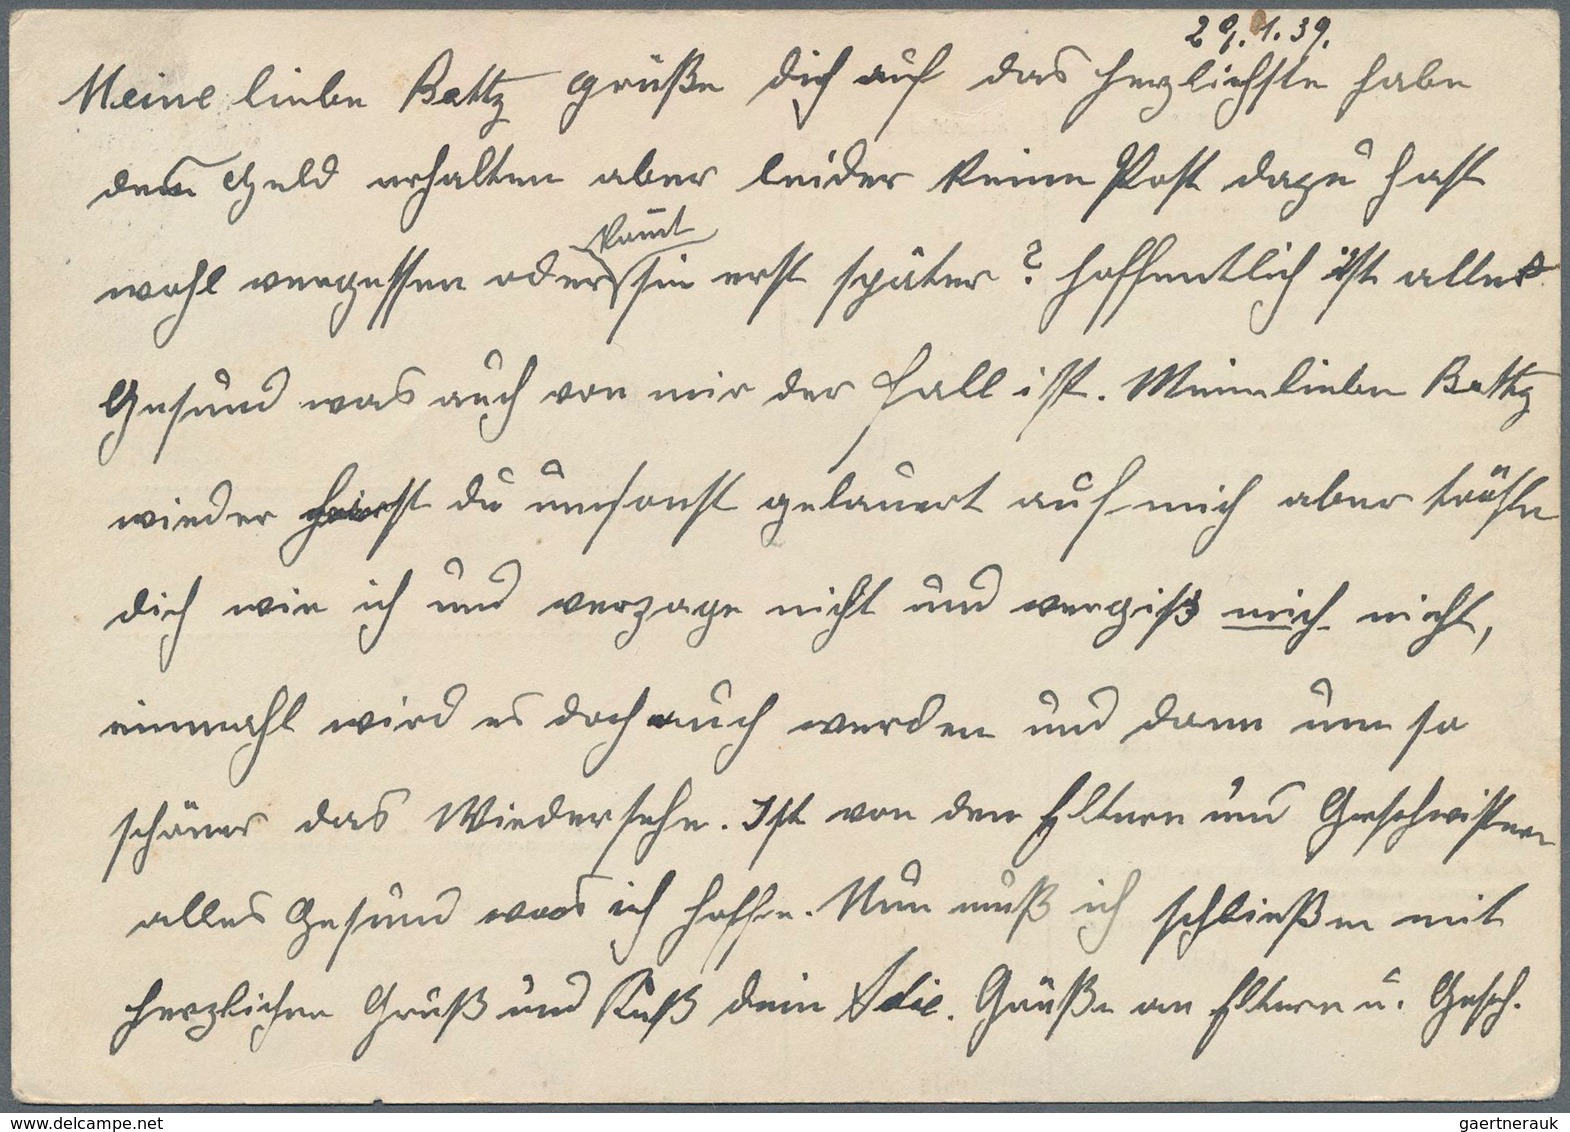 29.1.39.
Meine liebe Battz grüße dich auf das herzlichste habe
den Geld erhalten aber leider keine Post dazu hast
komt
wohl vergessen oder sie erst später? hoffentlich ist alles
Gesund was auch von mir der Fall ist. Meine liebe Battz
wieder hast du umsonst gelauert auf mich aber tröste
dich wie ich und verzage nicht und vergiß mich nicht,
einmahl wird es doch auch werden und dann um so
schöner das Wiedersehe. Ist von den Eltern und Geschwistern
alles Gesund was ich hoffe. Nun muß ich schließen mit
herzlichen Gruß und Kuß dein Adie. Grüße an Eltern u. Gesch.
www.delcampe.net
gaertnerauk